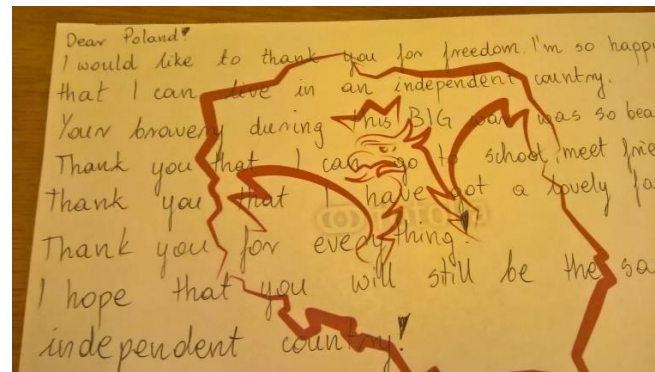 Dear Poland!
I would like to thank you for freedom. I'm so happy
that I can live in an independent country.
Your bravery during this BIG war was so
Thank you that I can go to school, meet
Thank you that I have got a lovely
Thank you for everything!
I hope that you will still be the
independent country!